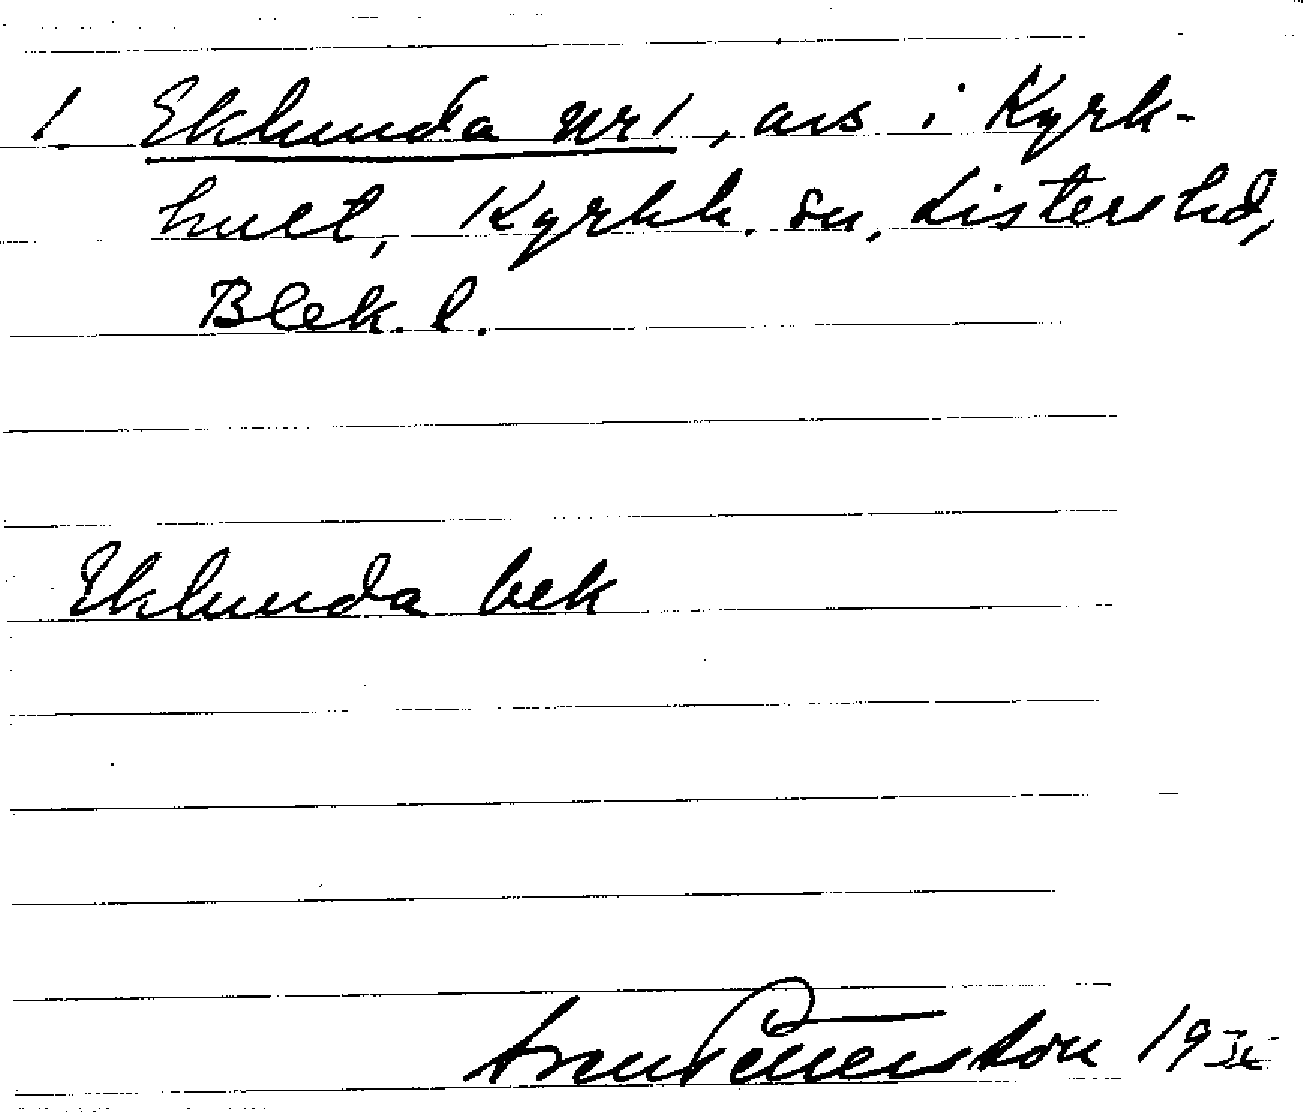 1 Eklunda nr 1, avs i Kyrk-
hult, Kyrkh. sn, Listers hd,
Blek. l.
Eklunda bek
Pettersson 19